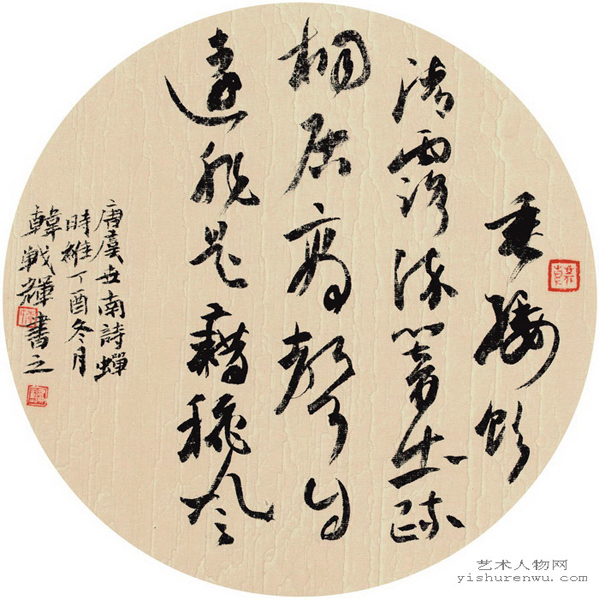 垂緌飲
清露流響出疏
桐居高聲自
遠非是藉秋風
唐虞世南詩蟬
時維丁酉冬月
韓戰輝書之
艺术人物网
yishurenwu.com